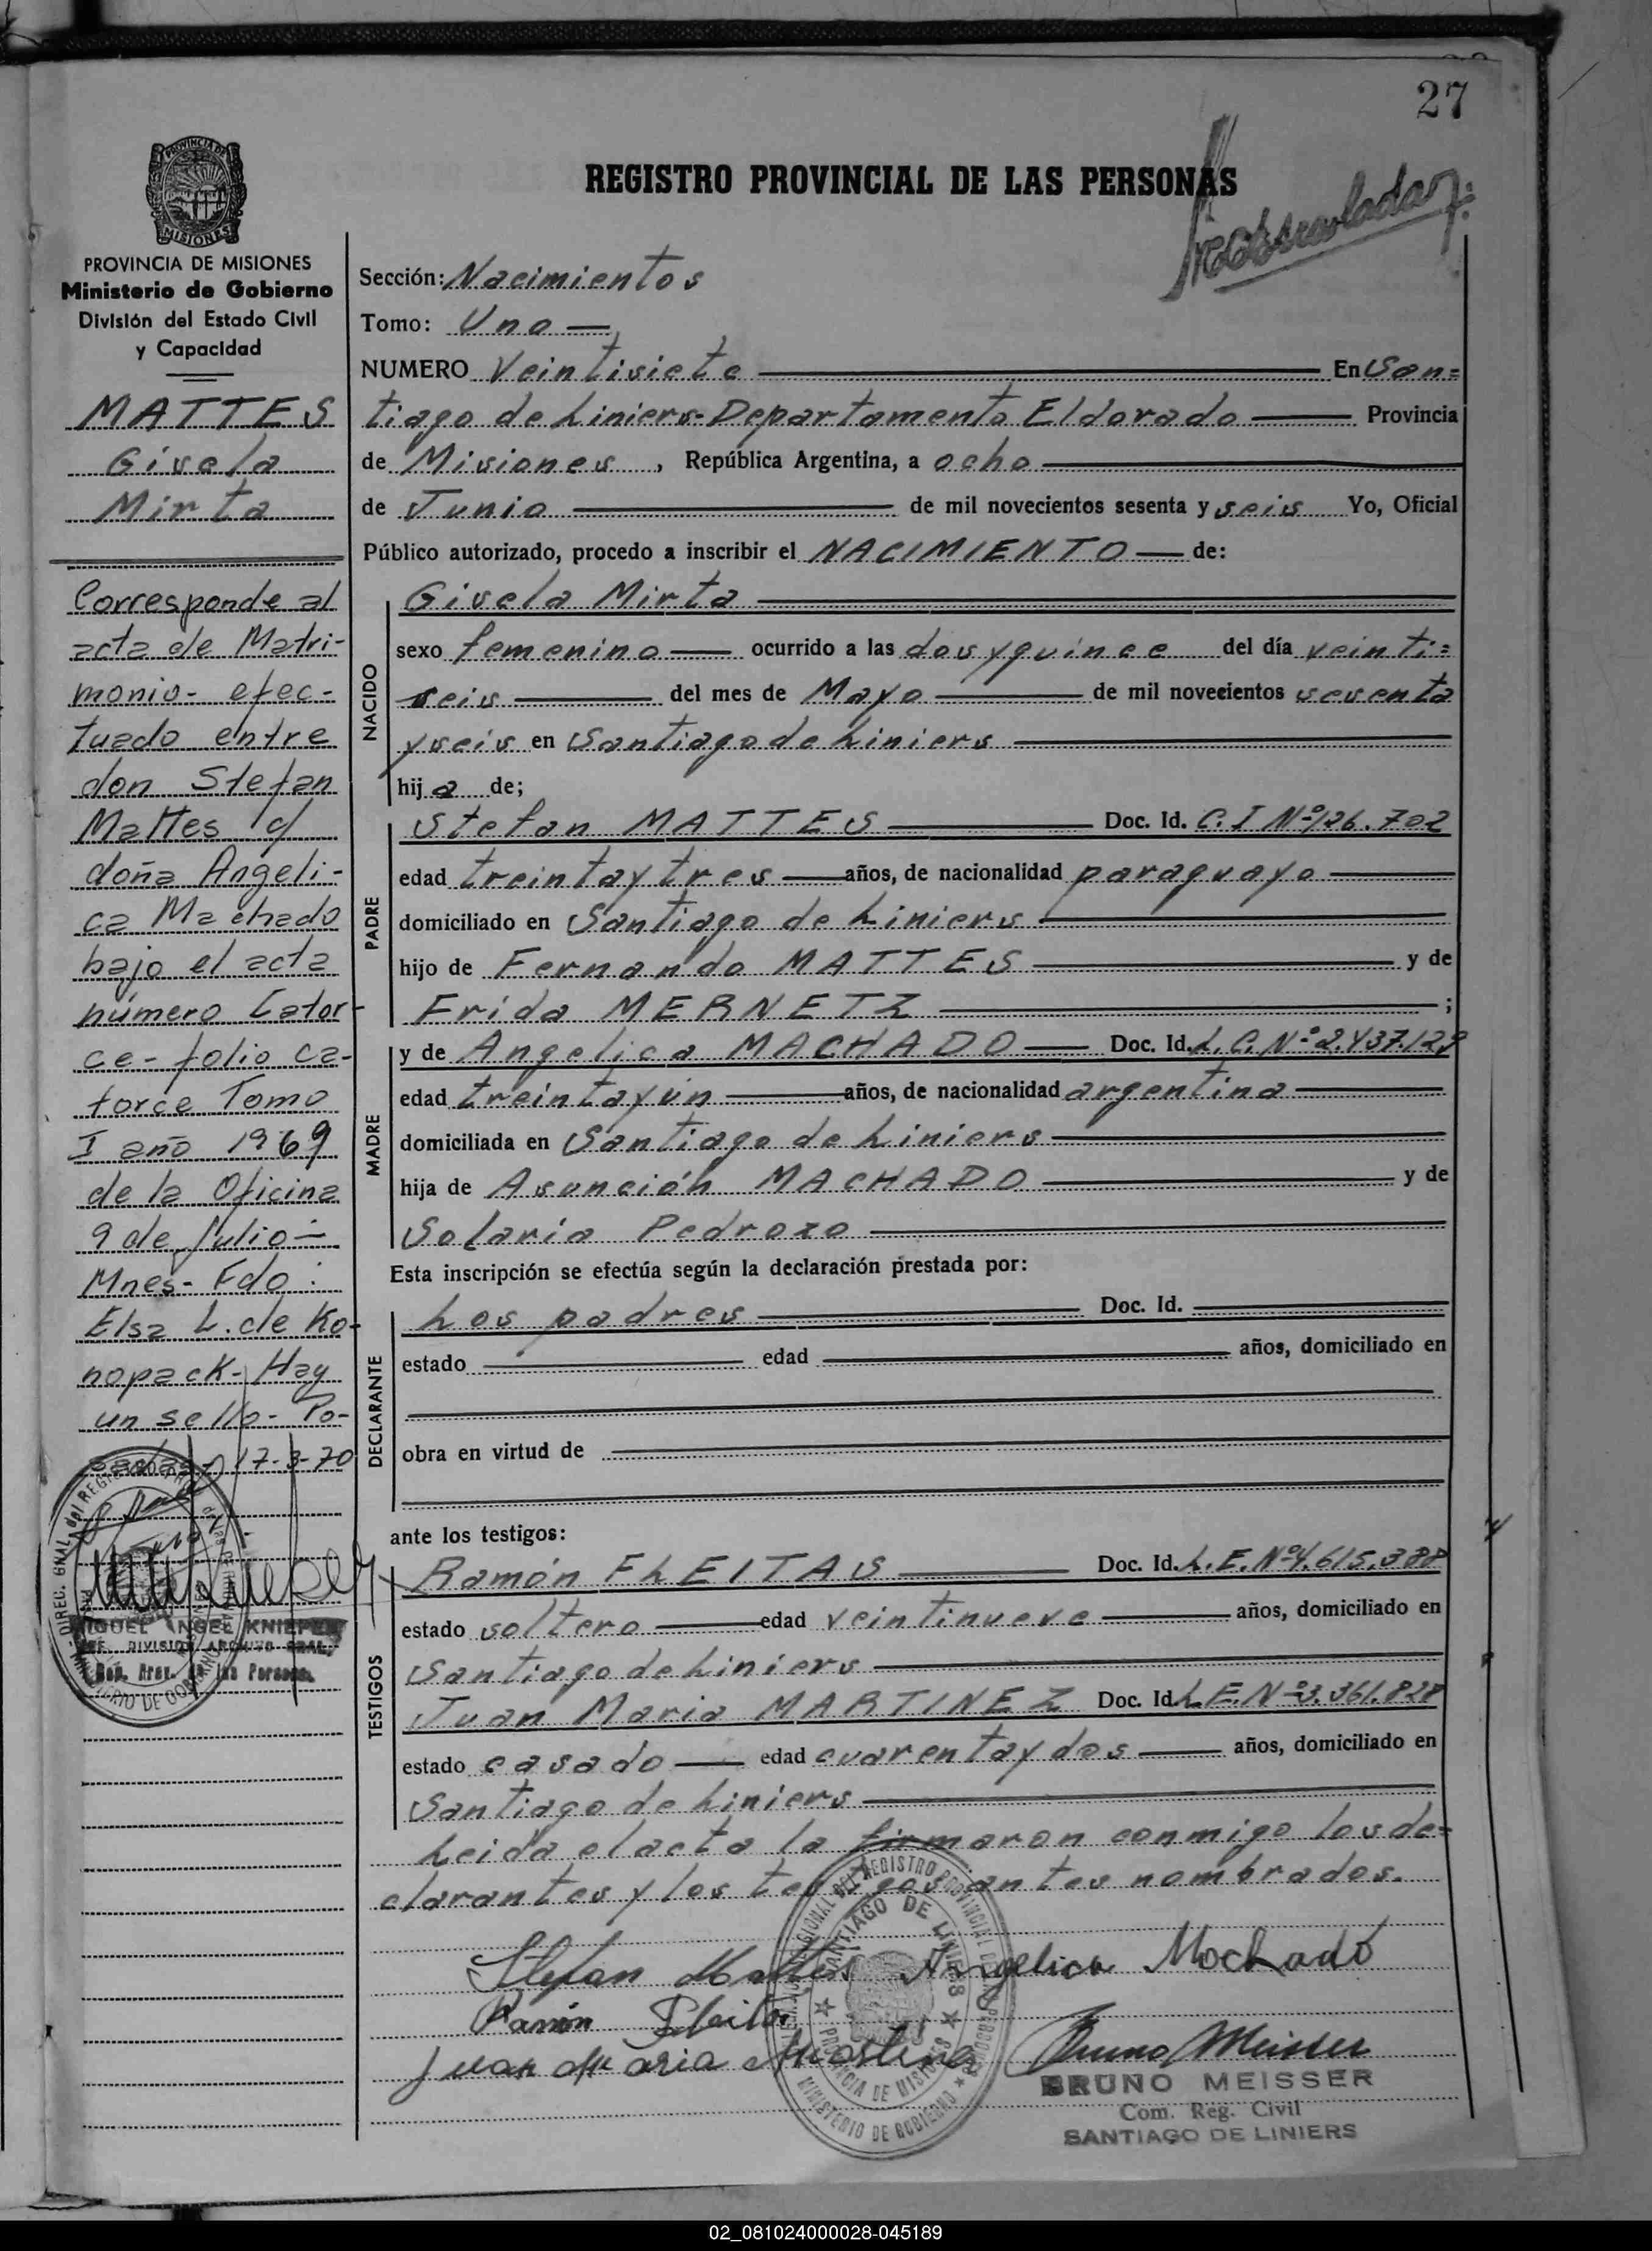 27
REGISTRO PROVINCIAL DE LAS PERSONAS
PROVINCIA DE MISIONES
Ministerio de Gobierno
División del Estado Civil
y Capacidad
MATTES
Gisela
Mirta
Corresponde al
acta de Matri-
monio- efec-
tuado entre
don Stefan
Mattes c/
doña Angeli-
ca Machado
bajo el acta
número Cator-
ce- folio ca-
torce Tomo
I año 1969
de la Oficina
9 de Julio-
Mnes- Fdo:
Elsa L. de Ko-
nopack- Hay
un sello- Po-
17-3-70
MIGUEL ANGEL KNIEPER
JEF. DIVISION ARCHIVO GRAL.
Sección: Nacimientos
Tomo: Uno
NUMERO Veintisiete En San=
tiago de Liniers-Departamento Eldorado Provincia
de Misiones, República Argentina, a ocho
de Junio de mil novecientos sesenta y seis Yo, Oficial
Público autorizado, procedo a inscribir el NACIMIENTO de:
NACIDO
Gisela Mirta
sexo femenino ocurrido a las dos y quince del día veinti=
seis del mes de Mayo de mil novecientos sesenta
y seis en Santiago de Liniers
hija de;
PADRE
Stefan MATTES Doc. Id. C. I Nº 126.702
edad treinta y tres años, de nacionalidad paraguayo
domiciliado en Santiago de Liniers
hijo de Fernando MATTES y de
Frida MERNETZ ;
MADRE
y de Angelica MACHADO Doc. Id. L. C. Nº
edad treinta y ún años, de nacionalidad argentina
domiciliada en Santiago de Liniers
hija de Asunción MACHADO y de
Solaria Pedrozo
Esta inscripción se efectúa según la declaración prestada por:
DECLARANTE
Los padres Doc. Id.
estado edad años, domiciliado en
obra en virtud de
ante los testigos:
TESTIGOS
Ramón FLEITAS Doc. Id. L. E. Nº
estado soltero edad veintinueve años, domiciliado en
Santiago de Liniers
Juan Maria MARTINEZ Doc. Id. L. E. Nº 3.361.828
estado casado edad cuarenta y dos años, domiciliado en
Santiago de Liniers
Leida el acta la firmaron conmigo los de=
clarantes y los testigos antes nombrados.
Stefan Mattes Angelica Machado
Ramón Fleitas
Juan Maria Martinez Bruno Meisser
SANTIAGO DE LINIERS
PROVINCIA DE MISIONES
MINISTERIO DE GOBIERNO
BRUNO MEISSER
Com. Reg. Civil
SANTIAGO DE LINIERS
02_081024000028-045189